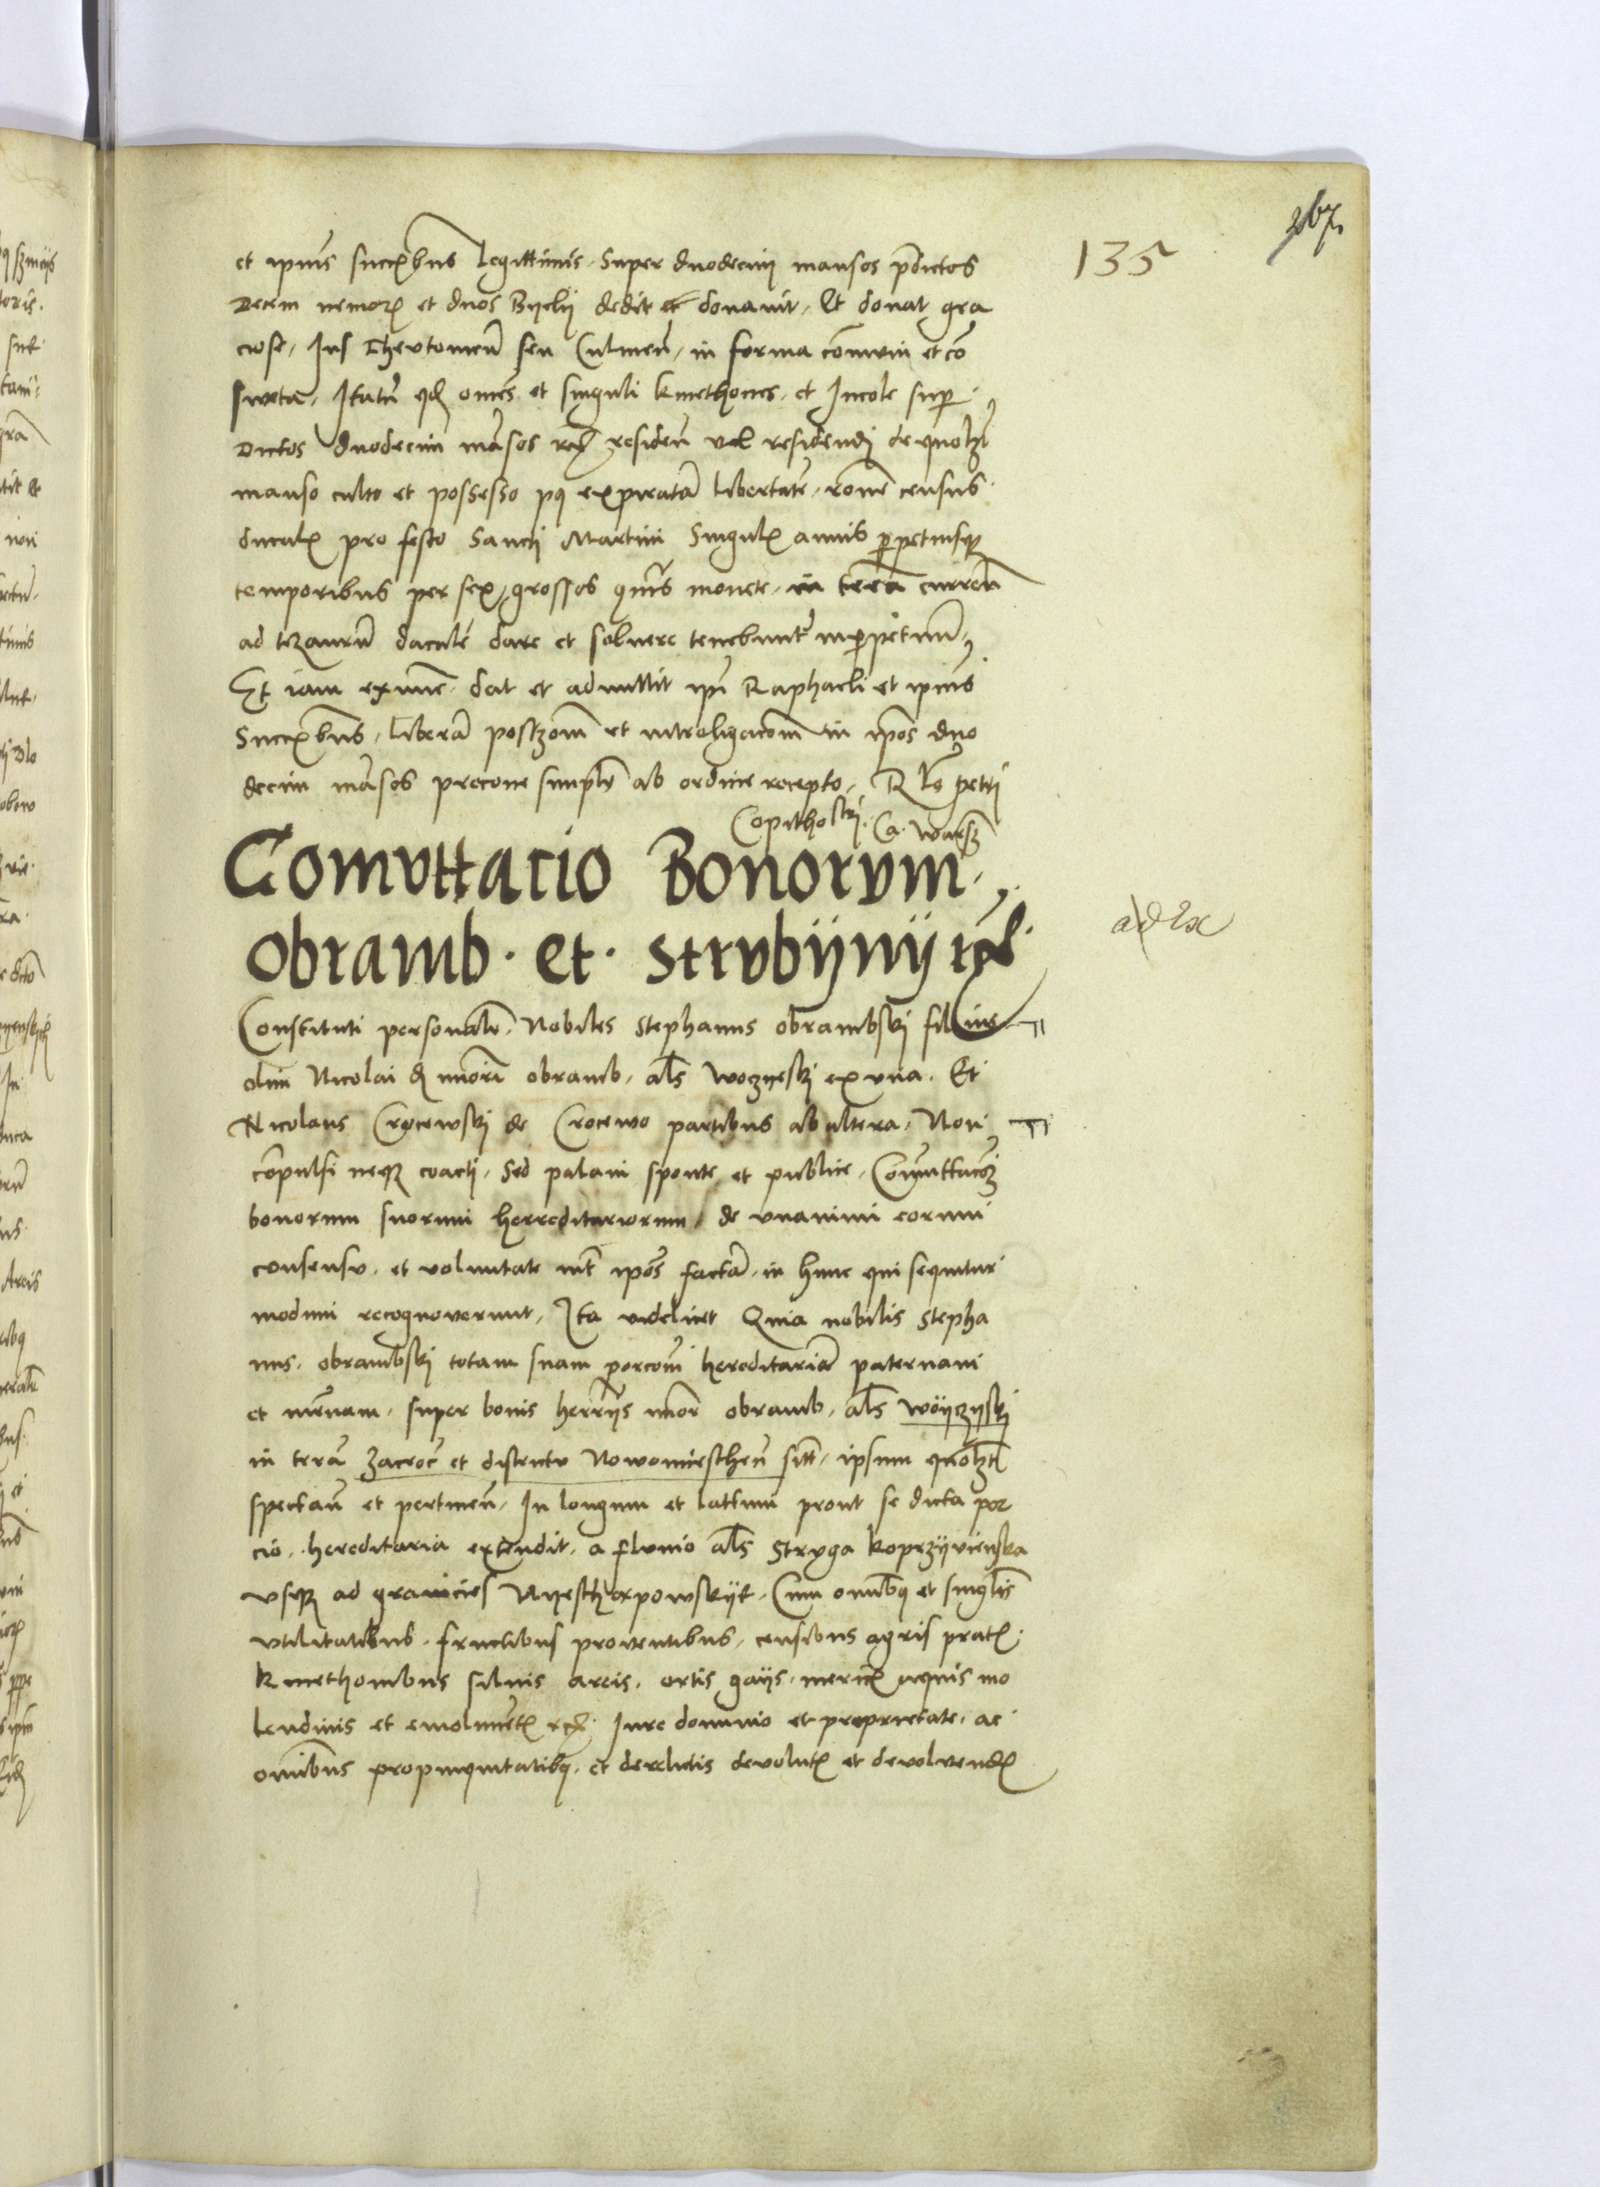 135
et ipius succₓbus legittimis. Super duodecim mansos pdictos
Decem nemorₓ et duos Byely dedit et donavit, Et donat gra
ciose, Ius Thevtonicu seu Culmen, in forma comuni et co
sweta, Itatn qd omes et singuli kmethones, et Incole sup
dictos duodecim masos residen vel residendi de quolzt
manso culto et possesso pq expirata libertate, rone census
ducalₓ pro festo Sancti Martini Singulₓ annis perpetuisqz
temporibus per sex grossos quis monete, in terra curren
ad tezauru ducale dare et soluere tenebuntr inperpetuum,
Et iam ex nunc dat et admittit ipi Raphaeli et ipius
Succₓbus, libera possezom et introligacom in ipos duo
decim masos precone simplr ab ordine recepto, R ls petri
Copithoski, Ca. Warsz
Comvttacio Bonorvm.
Obramb. et. Strvbijnij
Constituti personalr, Nobiles Stephanus obrambski filius
olim Nicolai d minori obramb, als Wozneski ex vna. Et
Nicolaus Crocewski de Crocewo partibus ab altera, Non
compulsi neqz coacti, Sed palam sponte et publice, Comuttacoz
bonorum suorum herreditariorum, de vnanimi eorum
consensv, et voluntate int ipos facta, in hunc qui sequitur
modum recognoverunt, Ita videlicet Quia nobilis Stepha
nus, obrambski totam suam porcom hereditaria paternam
et mrnam, super bonis herrijs mior obramb, als Wöyczyski
in tera Zacroc et districtu Nowomiesthen sitt, ipsum quolzt
spectan et pertinen, In longum et lattum prout se dicta por
cio, hereditaria extendit, a fluuio als Strvga koprzyvienska
vsqz ad granicies Nyestharpowskye, Cum omibq et singlis
vtilitatibus, fructibus proventibus, censibus agris pratₓ
kmethonibus siluis areis, ortis gays, mericₓ aquis mo
lendinis et emolumetₓ Iure dominio et proprietate, ac
omibus propinquitatibq, et derelictis devolutₓ et devolvendₓ